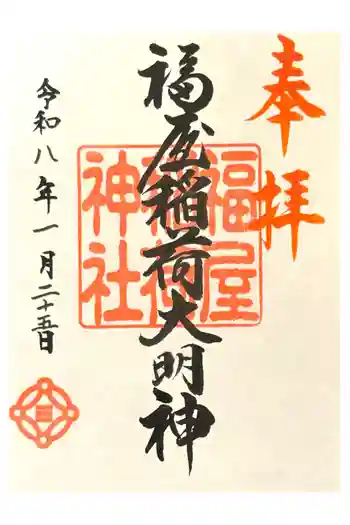 奉拝
福屋稲荷大明神
福屋
稲荷
神社
令和八年一月二十五日